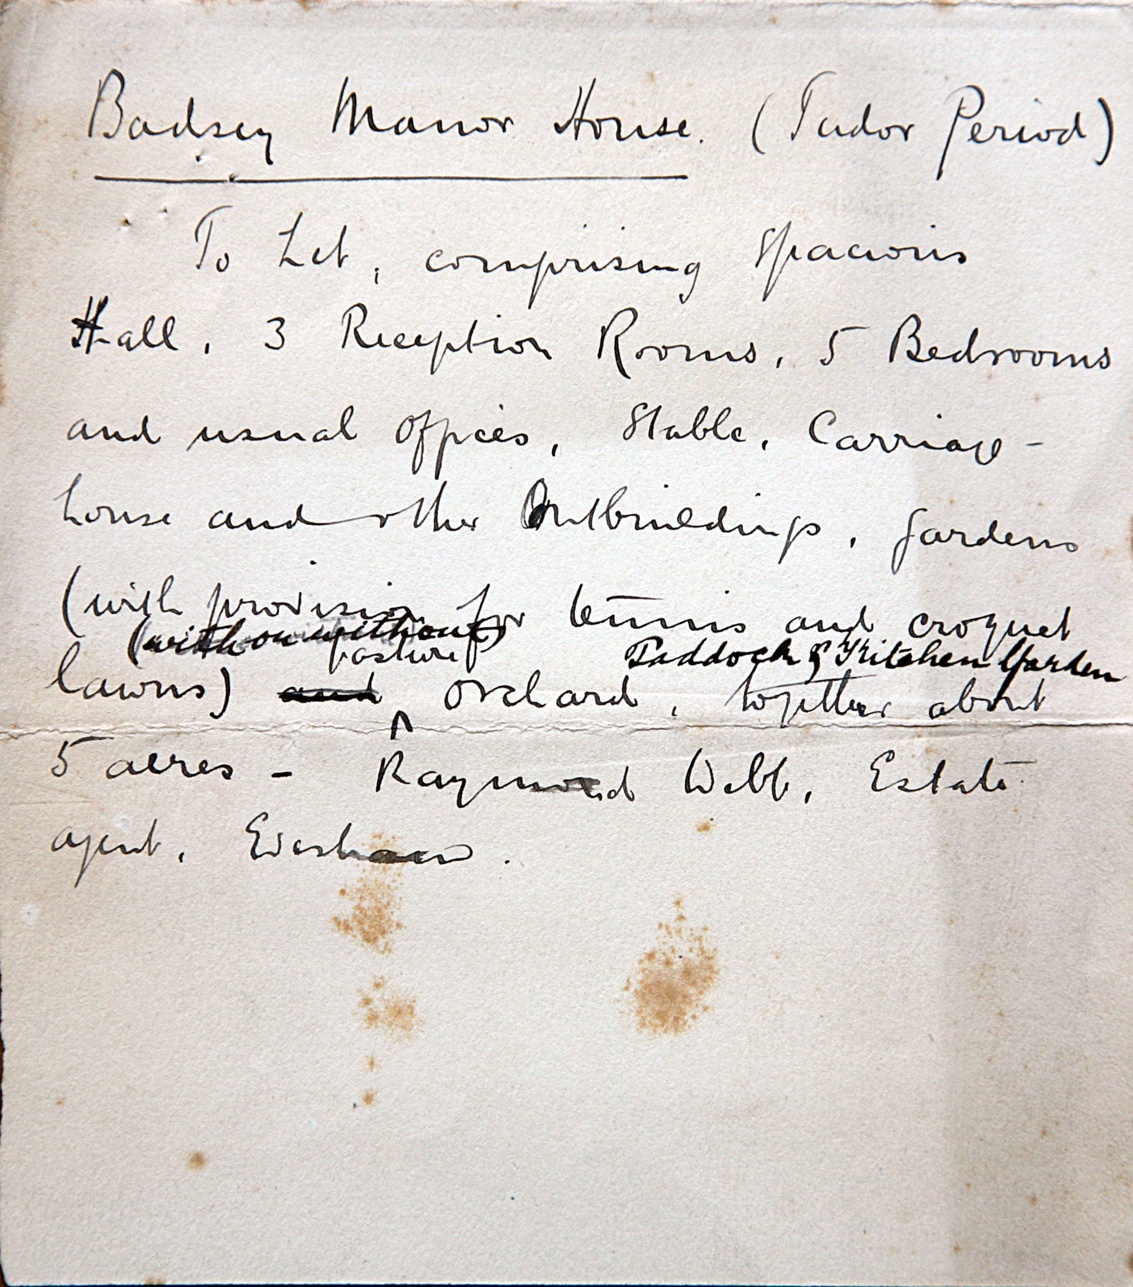 Badsey Manor House. (Tudor Period)
To Let, comprising spacious
Hall, 3 Reception Rooms, 5 Bedrooms
and usual offices, Stable, Carriage-
house and other Outbuildings, gardens
(with provision for tennis and croquet
(with or without)
pasture
Paddock & Kitchen Garden
lawns) and orchard, together about
5 acres - Raymond Webb, Estate
agent, Evesham.